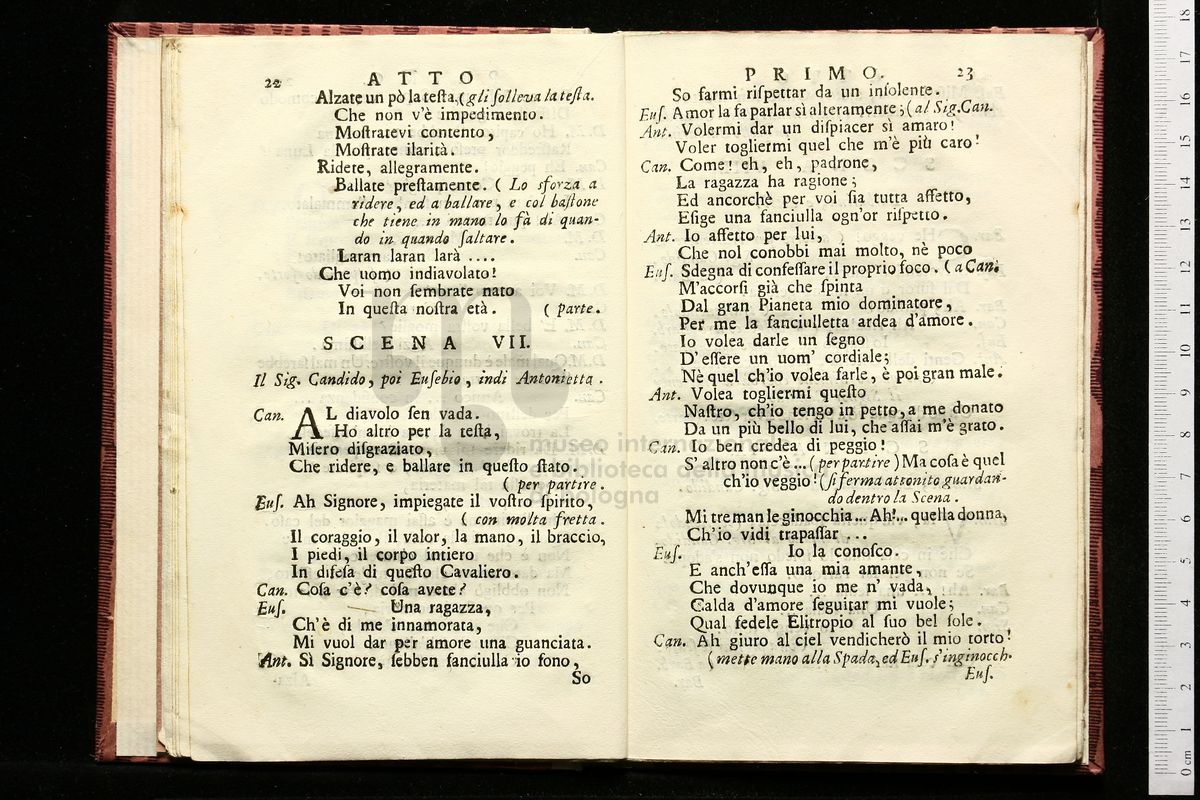 22
ATTO
Alzate un pò la teſta. (gli ſolleva la teſta.
Che non v'è impedimento.
Moſtratevi contento,
Moſtrate ilarità.
Ridere, allegramente.
Ballate preſtamente. ( Lo sforza a
ridere, ed a ballare, e col baſtone
che tiene in mano lo fà di quan-
do in quando ſaltare.
Laran laran larà ....
Che uomo indiavolato!
Voi non ſembrate nato
In queſta noſtra età. ( parte.
SCENA VII.
Il Sig. Candido, poi Euſebio, indi Antonietta.
Can. AL diavolo ſen vada.
Ho altro per la teſta,
Miſero diſgraziato,
Che ridere, e ballare in queſto ſtato.
( per partire.
Euſ. Ah Signore, impiegate il voſtro ſpirito,
( con molta fretta.
Il coraggio, il valor, la mano, il braccio,
I piedi, il corpo intiero
In difeſa di queſto Cavaliero.
Can. Coſa c'è? coſa avete?
Euſ. Una ragazza,
Ch'è di me innamorata,
Mi vuol dar per amore una guanciata.
Ant. Sì Signore, ſebben fanciulla io ſono,
So
PRIMO.
23
So farmi riſpettar da un inſolente.
Euſ. Amor la fa parlar sì alteramente; (al Sig. Can.
Ant. Volermi dar un diſpiacer sì amaro!
Voler togliermi quel che m'è più caro!
Can. Come! eh, eh, padrone,
La ragazza ha ragione;
Ed ancorchè per voi ſia tutta affetto,
Eſige una fanciulla ogn'or riſpetto.
Ant. Io affetto per lui,
Che nol conobbi mai molto, nè poco
Euſ. Sdegna di confeſſare il proprio foco. (a Can.
M'accorſi già che ſpinta
Dal gran Pianeta mio dominatore,
Per me la fanciulletta ardea d'amore.
Io volea darle un ſegno
D'eſſere un uom' cordiale;
Nè quel ch'io volea farle, è poi gran male.
Ant. Volea togliermi queſto
Naſtro, ch'io tengo in petto, a me donato
Da un più bello di lui, che aſſai m'è grato.
Can. Io ben credea di peggio!
S' altro non c'è ... (per partire) Ma coſa è quel
ch'io veggio! (ſi ferma attonito guardan-
do dentro la Scena.
Mi treman le ginocchia... Ah!... quella donna,
Ch'io vidi trapaſſar ...
Euſ. Io la conoſco.
E anch'eſſa una mia amante,
Che dovunque io me n' vada,
Calda d'amore ſeguitar mi vuole;
Qual fedele Elitropio al ſuo bel ſole.
Can. Ah giuro al ciel vendicherò il mio torto!
(mette mano alla Spada, ed Euſ. s'inginocch.
Euſ.
museo internazionale
e biblioteca della musica
di bologna